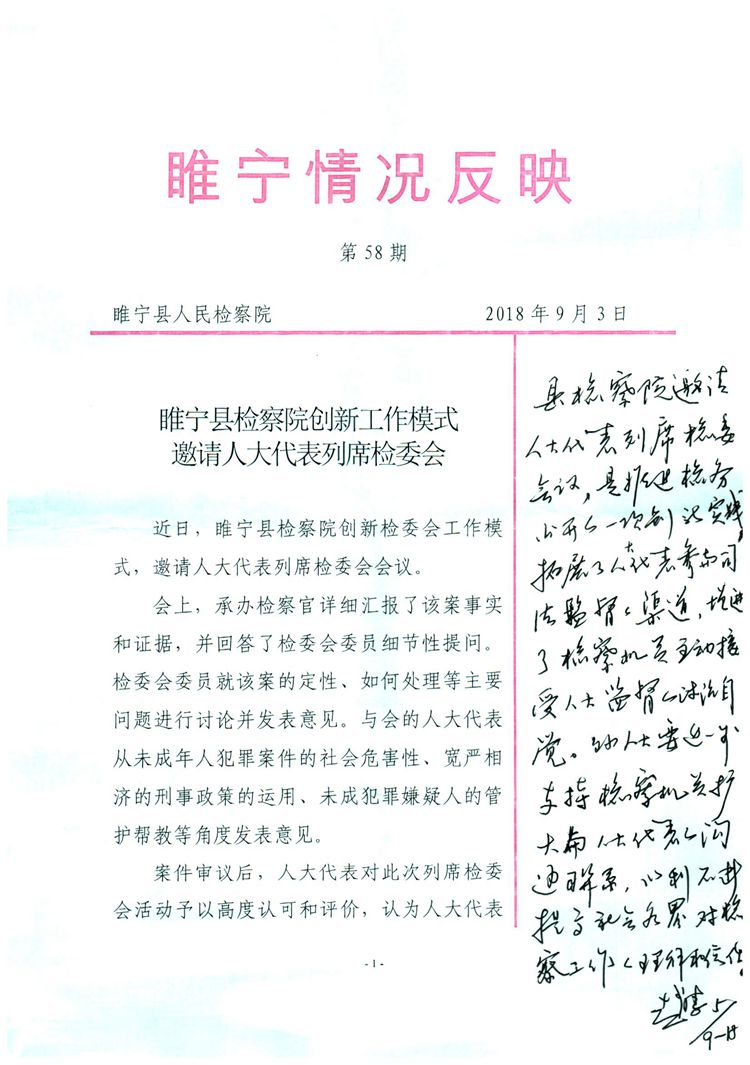 睢宁情况反映
第58期
睢宁县人民检察院 2018年9月3日
睢宁县检察院创新工作模式
邀请人大代表列席检委会
近日，睢宁县检察院创新检委会工作模
式，邀请人大代表列席检委会会议。
会上，承办检察官详细汇报了该案事实
和证据，并回答了检委会委员细节性提问。
检委会委员就该案的定性、如何处理等主要
问题进行讨论并发表意见。与会的人大代表
从未成年人犯罪案件的社会危害性、宽严相
济的刑事政策的运用、未成犯罪嫌疑人的管
护帮教等角度发表意见。
案件审议后，人大代表对此次列席检委
会活动予以高度认可和评价，认为人大代表
-1-
县检察院邀请
人大代表列席检委
会议，是推进检务
公开的一次创新实践
拓展了人大代表参与司
法监督的渠道，增进
了检察机关主动接
受人大监督的法治自
觉。人大要进一步
支持检察机关扩
大和人大代表的沟
通联系，以利不断
提高社会各界对检
察工作的理解和信任